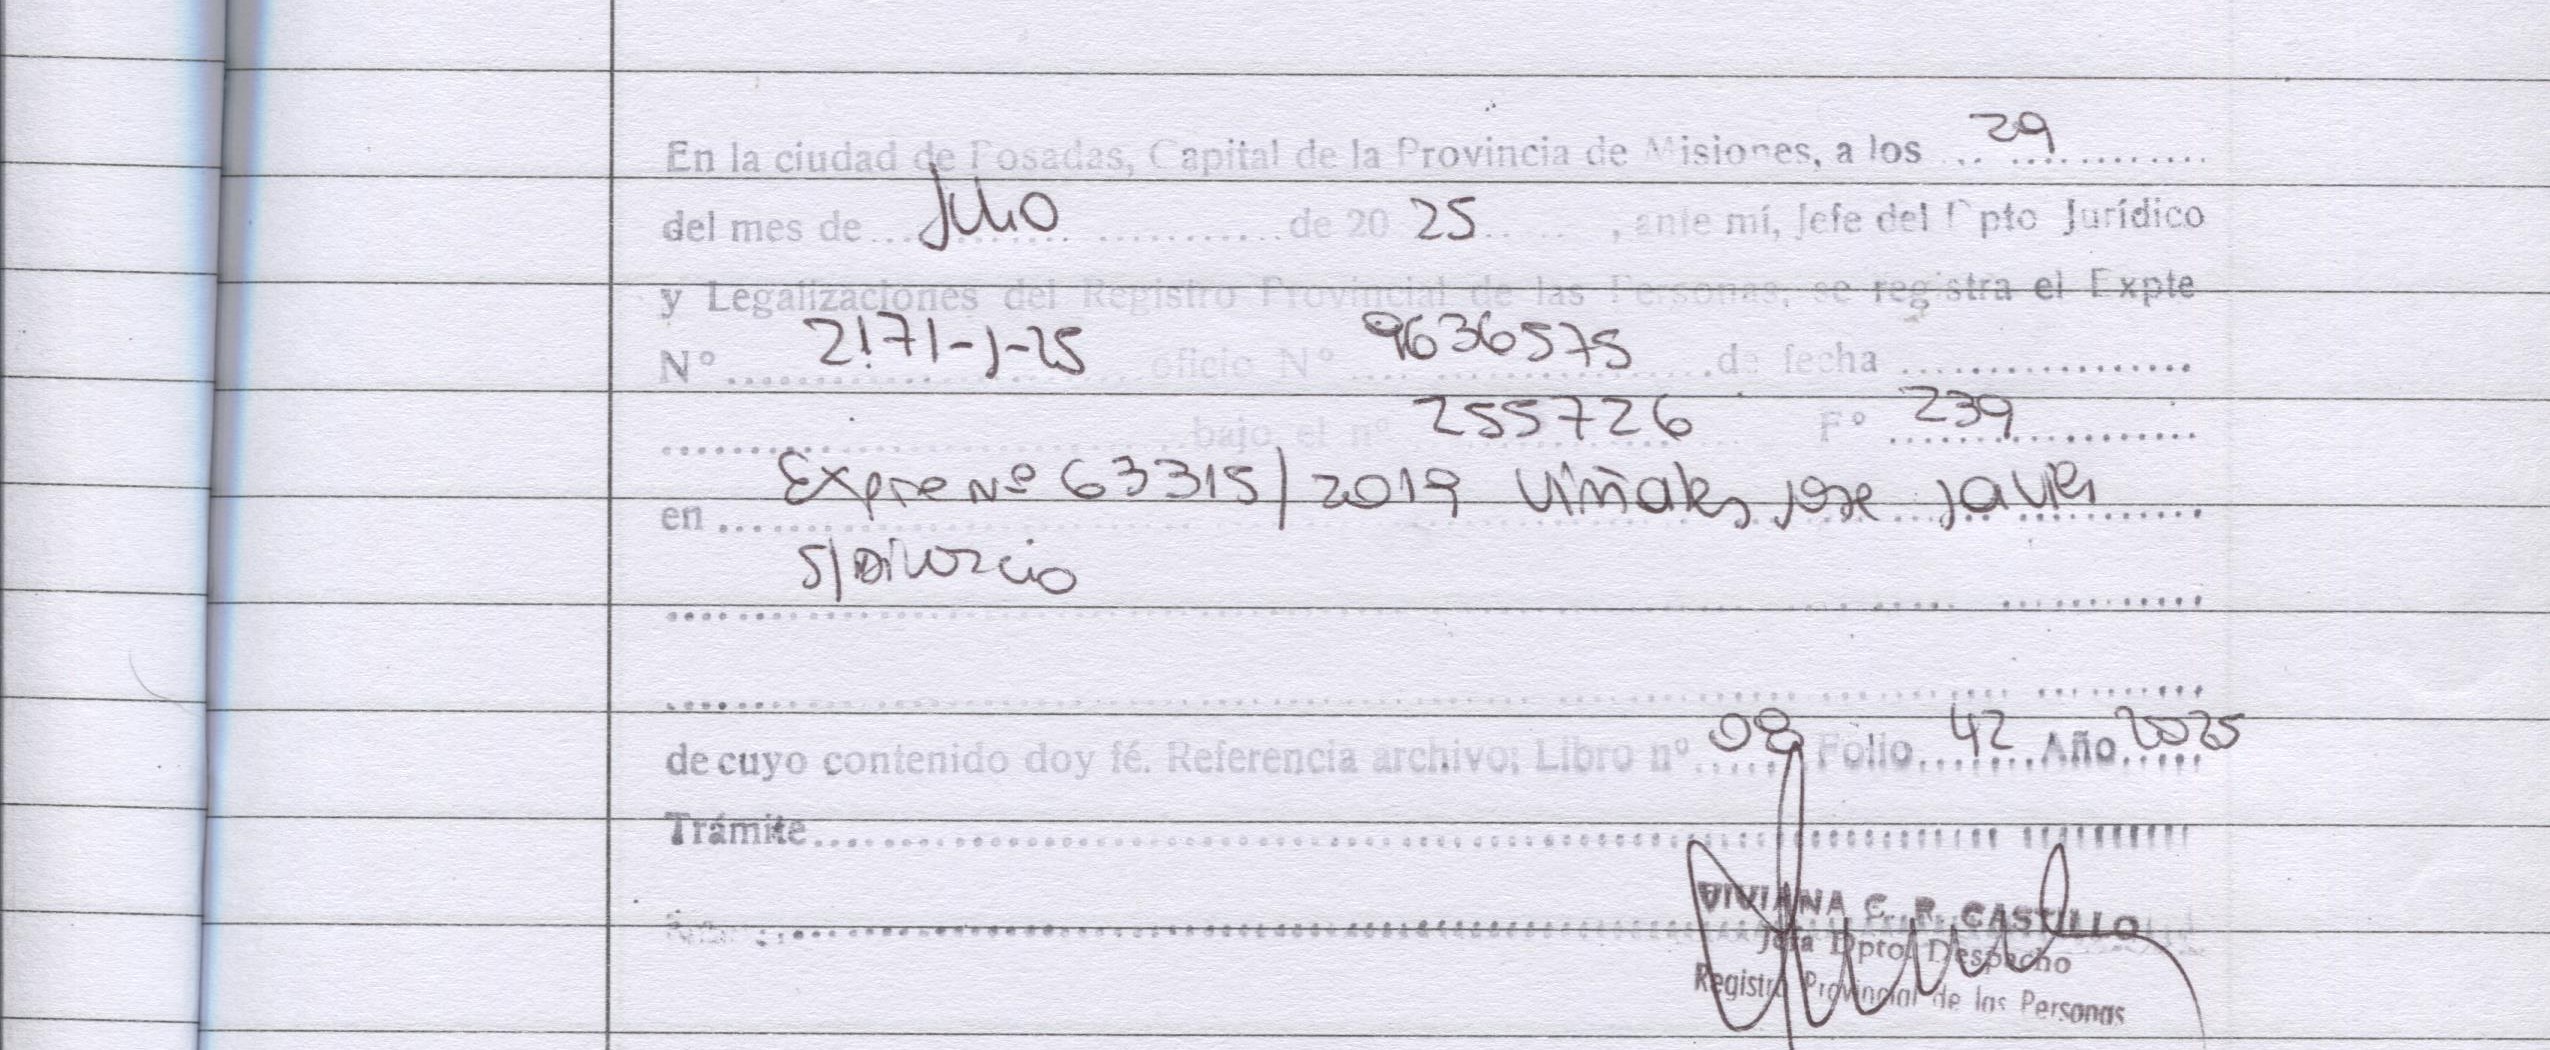 En la ciudad de Posadas, Capital de la Provincia de Misiones, a los ... 29 ............
del mes de ... Julio ............ de 20 25 ...... , ante mí, Jefe del Dpto Jurídico
y Legalizaciones del Registro Provincial de las Personas, se registra el Expte
Nº ... 2171-J-25 ... oficio Nº ... 9636575 ... de fecha .................
............ bajo el nº 255726 Fº ... 239 ............
en ... Expte Nº 63315/2019 Viñales Jose Javier
S/Divorcio
de cuyo contenido doy fé. Referencia archivo; Libro nº 08 Folio 42 Año 2025
Trámite
VIVIANA C. R. CASTILLO
Jefa Dpto. Despacho
Registro Provincial de las Personas